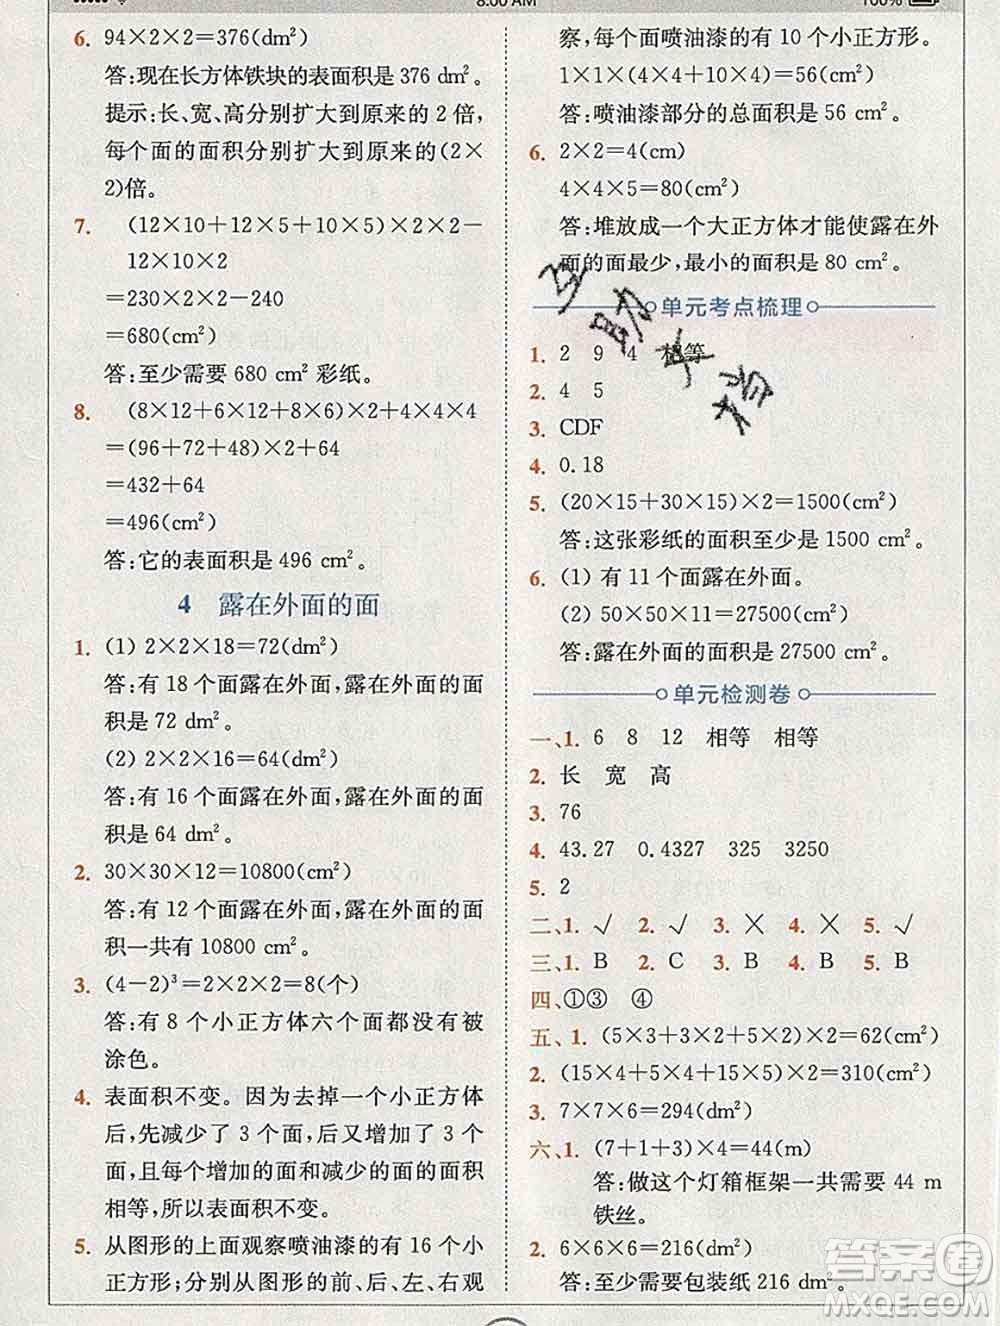 8:00 AM
100%
6. 94×2×2=376(dm²)
答:现在长方体铁块的表面积是 376 dm²。
提示:长、宽、高分别扩大到原来的 2 倍,
每个面的面积分别扩大到原来的(2×
2)倍。
7. (12×10+12×5+10×5)×2×2−
12×10×2
=230×2×2−240
=680(cm²)
答:至少需要 680 cm² 彩纸。
8. (8×12+6×12+6×8)×2+4×4×4
=(96+72+48)×2+64
=432+64
=496(cm²)
答:它的表面积是 496 cm²。
4 露在外面的面
1. (1) 2×2×18=72(dm²)
答:有 18 个面露在外面,露在外面的面
积是 72 dm²。
(2) 2×2×16=64(dm²)
答:有 16 个面露在外面,露在外面的面
积是 64 dm²。
2. 30×30×12=10800(cm²)
答:有 12 个面露在外面,露在外面的面
积一共有 10800 cm²。
3. (4−2)³=2×2×2=8(个)
答:有 8 个小正方体六个面都没有被
涂色。
4. 表面积不变。因为去掉一个小正方体
后,先减少了 3 个面,后又增加了 3 个
面,且每个增加的面和减少的面的面积
相等,所以表面积不变。
5. 从图形的上面观察喷油漆的有 16 个小
正方形;分别从图形的前、后、左、右观
察,每个面喷油漆的有 10 个小正方形。
1×1×(4×4+10×4)=56(cm²)
答:喷油漆部分的总面积是 56 cm²。
6. 2×2=4(cm)
4×4×5=80(cm²)
答:堆放成一个大正方体才能使露在外
面的面最少,最小的面积是 80 cm²。
单元考点梳理
1. 2 9 4 相等
2. 4 5
3. CDF
4. 0.18
5. (20×15+30×15)×2=1500(cm²)
答:这张彩纸的面积至少是 1500 cm²。
6. (1) 有 11 个面露在外面。
(2) 50×50×11=27500(cm²)
答:露在外面的面积是 27500 cm²。
单元检测卷
一、1. 6 8 12 相等 相等
2. 长 宽 高
3. 76
4. 43.27 0.4327 325 3250
5. 2
二、1. √ 2. √ 3. × 4. × 5. √
三、1. B 2. C 3. B 4. B 5. B
四、①③ ④
五、1. (5×3+3×2+5×2)×2=62(cm²)
2. (15×4+5×4+15×5)×2=310(cm²)
3. 7×7×6=294(dm²)
六、1. (7+1+3)×4=44(m)
答:做这个灯箱框架一共需要 44 m
铁丝。
2. 6×6×6=216(dm²)
答:至少需要包装纸 216 dm²。
互助文档
答案圈
MXQE.COM